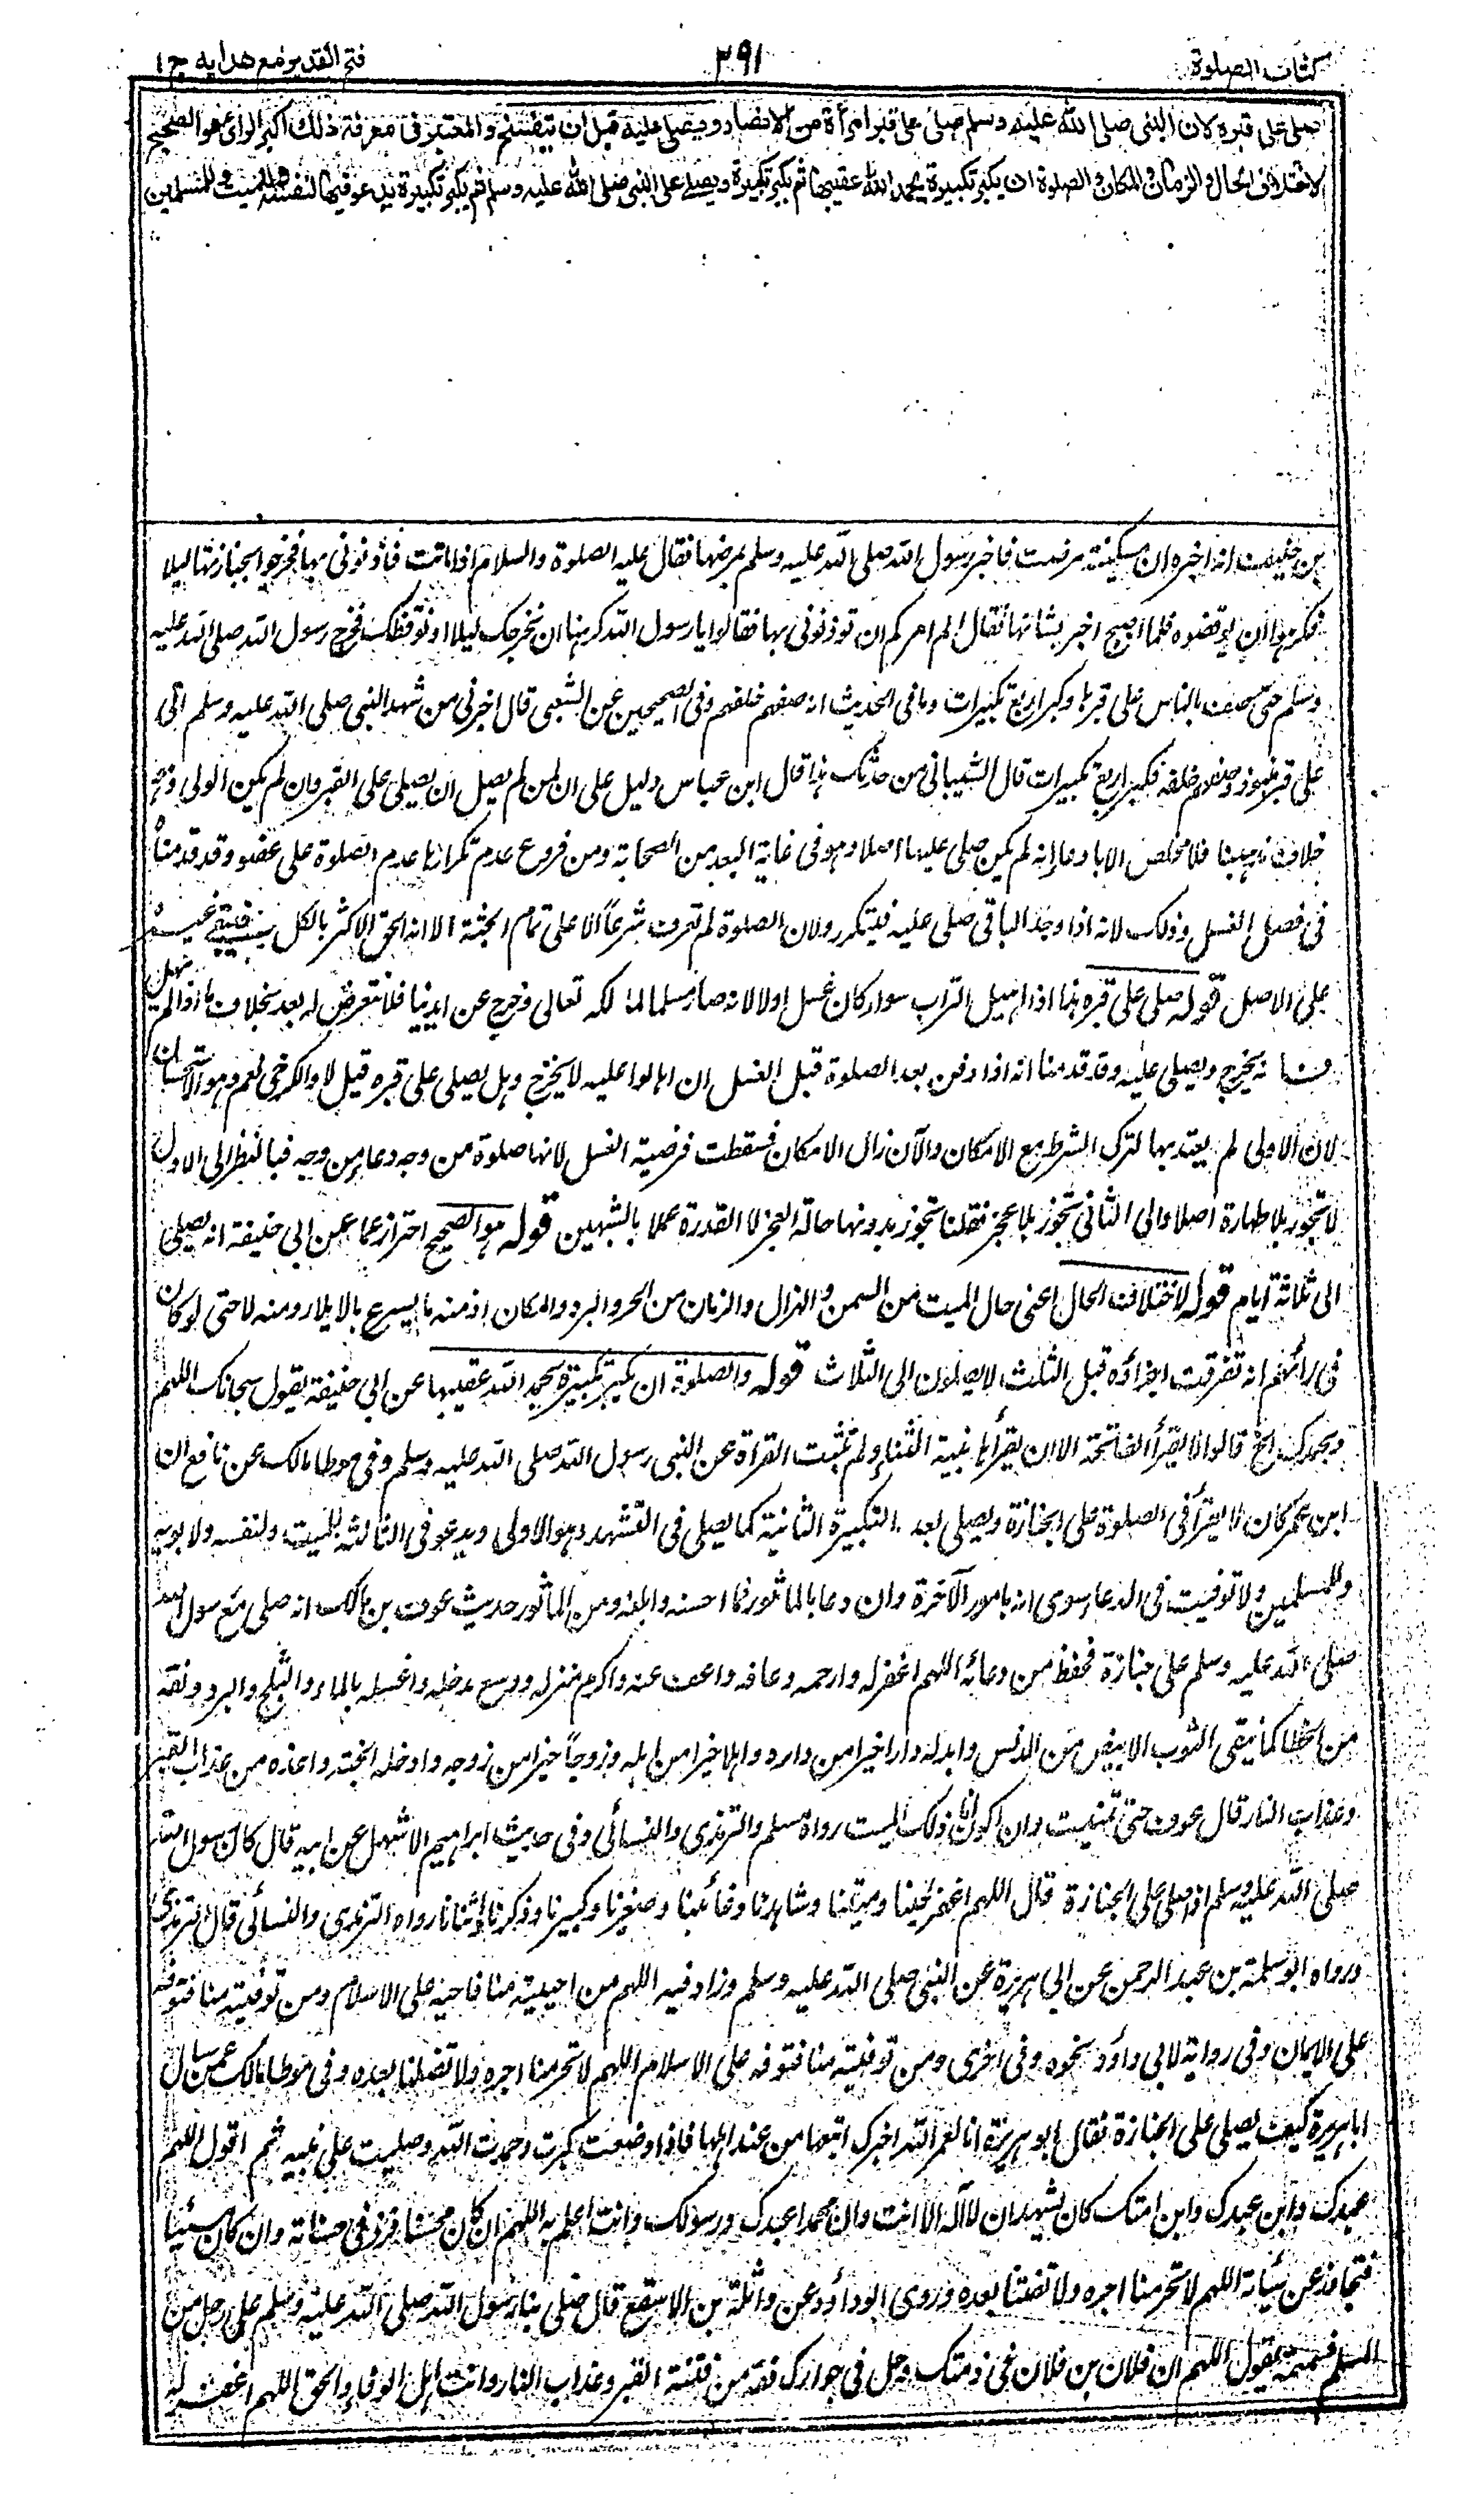 كتاب الصلوة
٢٩١
فتح القدير مع هدايه ج ١
صلى على قبره لان النبى صلى الله عليه وسلم صلى على قبر امرأة من الانصار ويصلى عليه قبل ان يتفسخ والمعتبر فى معرفة ذلك اكبر الراى هو الصحيح
لاختلاف الحال والزمان والمكان والصلوة ان يكبر تكبيرة يحمد الله عقيبها ثم يكبر تكبيرة ويصلى على النبى صلى الله عليه وسلم ثم يكبر تكبيرة يدعو فيها لنفسه وللميت وللمسلمين
بن حنيف انه اخبره ان مسكينة مرضت فاخبر رسول الله صلى الله عليه وسلم بمرضها فقال عليه الصلوة والسلام اذا ماتت فاذنونى بها فخرجوا بجنازتها ليلا
فكرهوا ان يوقظوه فلما اصبح اخبر بشانها فقال الم امركم ان توذنونى بها فقالوا يا رسول الله كرهنا ان نخرجك ليلا او نوقظك فخرج رسول الله صلى الله عليه
وسلم حتى صف بالناس على قبرها وكبر اربع تكبيرات وما فى الحديث انه صفهم خلفهم وفى الصحيحين عن الشعبى قال اخبرنى من شهد النبى صلى الله عليه وسلم اتى
على قبر منبوذ وصفهم خلفه فكبر اربع تكبيرات قال الشيبانى من حدثك هذا قال ابن عباس دليل على ان لمن لم يصل ان يصلى على القبر وان لم يكن الولى وهو
خلاف مذهبنا فلا مخلص الا بادعاء انه لم يكن صلى عليها اصلا وهو فى غاية البعد من الصحابة ومن فروع عدم تكرارها عدم الصلوة على عضو وقد قدمناه
فى فصل الغسل وذلك لانه اذا وجد الباقى صلى عليه فيتكرر ولان الصلوة لم تعرف شرعاً الا على تمام الجثة الا انه الحق الاكثر بالكل فيبقى غيره
على الاصل قوله صلى على قبره هذا اذا اهيل التراب سواء كان غسل اولا لانه صار مسلما لمالكه تعالى وخرج عن ايدينا فلا نتعرض له بعد بخلاف ما اذا لم يهل
فانه يخرج ويصلى عليه وقد قدمنا انه اذا دفن بعد الصلوة قبل الغسل ان اهالوا عليه لا يخرج وهل يصلى على قبره قيل لا والكرخى نعم وهو الاستحسان
لان الاولى لم يعتد بها لترك الشرط مع الامكان والآن زال الامكان فسقطت فرضية الغسل لانها صلوة من وجه ودعاء من وجه فبالنظر الى الاول
لا تجوز بلا طهارة اصلا والى الثانى تجوز بلا عجز فقلنا تجوز بدونها حالة العجز لا القدرة عملا بالشبهين قوله هو الصحيح احتراز عما عن ابى حنيفة انه يصلى
الى ثلاثة ايام قوله لاختلاف الحال اعنى حال الميت من السمن والهزال والزمان من الحر والبرد والمكان اذ منه ما يسرع بالابلاء ومنه لا حتى لو كان
فى رأيهم انه تفرقت اجزاؤه قبل الثلث لا يصلون الى الثلاث قوله والصلوة ان يكبر تكبيرة يحمد الله عقيبها عن ابى حنيفة يقول سبحانك اللهم
وبحمدك الخ قالوا لا يقرأ الفاتحة الا ان يقرأها بنية الثناء ولم تثبت القراءة عن النبى رسول الله صلى الله عليه وسلم وفى موطا مالك عن نافع ان
ابن عمر كان لا يقرأ فى الصلوة على الجنازة ويصلى بعد التكبيرة الثانية كما يصلى فى التشهد وهو الاولى ويدعو فى الثالثة للميت ولنفسه ولابويه
وللمسلمين ولا توقيت فى الدعاء سوى انه بامور الآخرة وان دعا بالماثور فما احسنه وابلغه ومن الماثور حديث عوف بن مالك انه صلى مع رسول الله
صلى الله عليه وسلم على جنازة فحفظ من دعائه اللهم اغفر له وارحمه وعافه واعف عنه واكرم منزله ووسع مدخله واغسله بالماء والثلج والبرد ونقه
من الخطايا كما ينقى الثوب الابيض من الدنس وابدله دارا خيرا من داره واهلا خيرا من اهله وزوجاً خيرا من زوجه وادخله الجنة واعذه من عذاب القبر
وعذاب النار قال عوف حتى تمنيت وان اكون انا ذلك الميت رواه مسلم والترمذى والنسائى وفى حديث ابراهيم الاشهل عن ابيه قال كان رسول الله
صلى الله عليه وسلم اذا صلى على الجنازة قال اللهم اغفر لحينا وميتنا وشاهدنا وغائبنا وصغيرنا وكبيرنا وذكرنا وانثانا رواه الترمذى والنسائى قال الترمذى
ورواه ابو سلمة بن عبد الرحمن عن ابى هريرة عن النبى صلى الله عليه وسلم وزاد فيه اللهم من احييته منا فاحيه على الاسلام ومن توفيته منا فتوفه
على الايمان وفى رواية لابى داؤد نحوه وفى اخرى ومن توفيته منا فتوفه على الاسلام اللهم لا تحرمنا اجره ولا تضلنا بعده وفى موطا مالك عمن سال
ابا هريرة كيف يصلى على الجنازة فقال ابو هريرة انا لعمر الله اخبرك اتبعها من عند اهلها فاذا وضعت كبرت وحمدت الله وصليت على نبيه ثم اقول اللهم
عبدك وابن عبدك وابن امتك كان يشهد ان لا اله الا انت وان محمدا عبدك ورسولك وانت اعلم به اللهم ان كان محسنا فزد فى حسناته وان كان مسيئا
فتجاوز عن سيأته اللهم لا تحرمنا اجره ولا تفتنا بعده وروى ابو داؤد عن واثلة بن الاسقع قال صلى بنا رسول الله صلى الله عليه وسلم على رجل من
المسلمين فسمعته يقول اللهم ان فلان بن فلان فى ذمتك وحل فى جوارك فقه من فتنة القبر وعذاب النار وانت اهل الوفاء والحق اللهم اغفر له